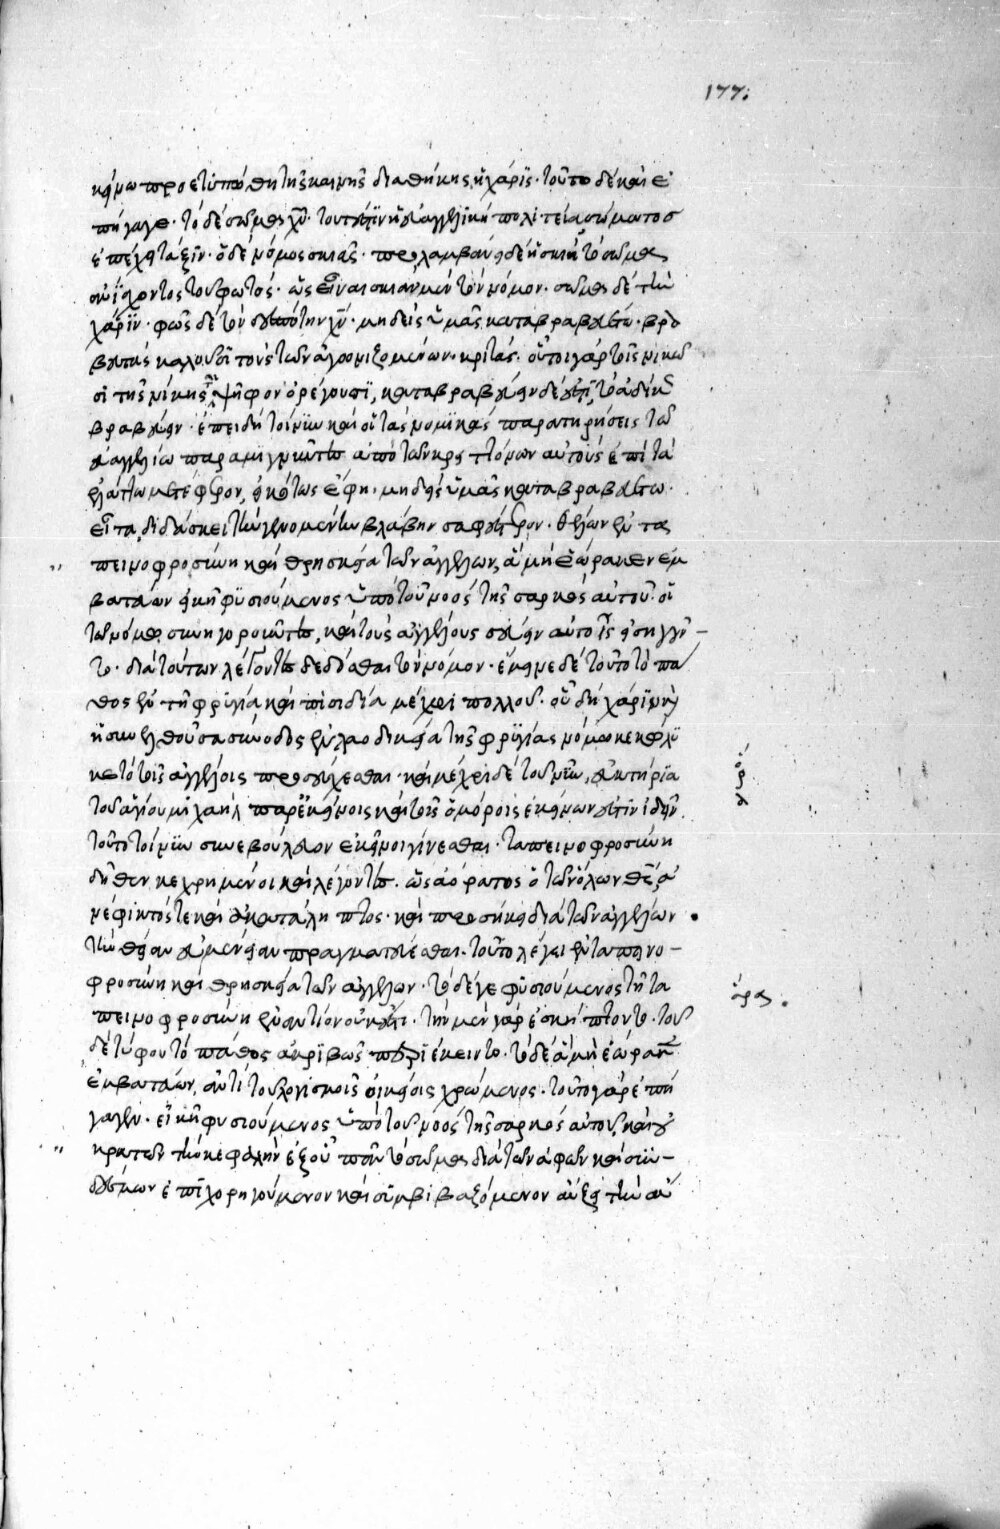 177.
κείνω προετυπώθη τῆς καινῆς διαθήκης ἡ χάρις· τοῦτο δὲ καὶ ἐ
πήγαγε· τὸ δὲ σῶμα χυ· τουτέστιν ἡ εὐαγγελικὴ πολιτεία σώματος
ἐπέχει τάξιν· ὁ δὲ νόμος σκιᾶς· προλαμβάνει δὲ ἡ σκιὰ τὸ σῶμα
ἀνίσχοντος τοῦ φωτός· ὡς εἶναι σκιὰν μὲν τὸν νόμον· σῶμα δὲ τὴν
χάριν· φῶς δὲ τὸν δεσπότην χν· μηδεὶς ὑμᾶς καταβραβευέτω· βρα
βευτὰς καλοῦσι τοὺς τῶν ἀγωνιζομένων κριτάς· οὗτοι γὰρ τοῖς νικῶ
σι τῆς νίκης τὴν ψῆφον ὀρέγουσι, καταβραβεύειν δέ ἐστι, τὸ ἀδίκως
βραβεύειν· ἐπειδὴ τοίνυν καὶ οἱ τὰς νομικὰς παρατηρήσεις τῷ
εὐαγγελίῳ παραμιγνῦντες ἀπὸ τῶν κρειττόνων αὐτοὺς ἐπὶ τὰ
ἐλάττω μετέφερον, εἰκότως ἔφη· μηδεὶς ὑμᾶς καταβραβευέτω·
εἶτα διδάσκει τὴν γενομένην βλάβην σαφέστερον· θέλων ἐν τα
πεινοφροσύνη καὶ θρησκεία τῶν ἀγγέλων, ἃ μὴ ἑώρακεν ἐμ
βατεύων εἰκῆ φυσιούμενος ὑπὸ τοῦ νοὸς τῆς σαρκὸς αὐτοῦ· οἱ
τῷ νόμω συνηγοροῦντες, καὶ τοὺς ἀγγέλους σέβειν αὐτοῖς εἰσηγοῦν
το· διὰ τούτων λέγοντες δεδόσθαι τὸν νόμον· ἔμεινε δὲ τοῦτο τὸ πά
θος ἐν τῆ φρυγία καὶ πισιδία μέχρι πολλοῦ· οὗ δὴ χάριν καὶ
ἡ συνελθοῦσα σύνοδος ἐν λαοδικεία τῆς φρυγίας νόμω κεκώλυ
κε τὸ τοῖς ἀγγέλοις προσεύχεσθαι· καὶ μέχρι δὲ τοῦ νῦν, εὐκτήρια
τοῦ ἁγίου μιχαὴλ παρ' ἐκείνοις καὶ τοῖς ὁμόροις ἐκείνων ἐστὶν ἰδεῖν.
τοῦτο τοίνυν συνεβούλευον ἐκεῖνοι γίνεσθαι· ταπεινοφροσύνη
δῆθεν κεχρημένοι καὶ λέγοντες· ὡς ἀόρατος ὁ τῶν ὅλων θς, ἀ
νέφικτός τε καὶ ἀκατάληπτος· καὶ προσήκει διὰ τῶν ἀγγέλων
τὴν θείαν εὐμένειαν πραγματεύεσθαι· τοῦτο λέγει ἐν ταπεινο
φροσύνη καὶ θρησκεία τῶν ἀγγέλων· τὸ δέ γε φυσιούμενος τῆ τα
πεινοφροσύνη ἐναντίον οὐκ ἔστι· τὴν μὲν γὰρ ἐσκήπτοντο· τοῦ
δὲ τύφου τὸ πάθος ἀκριβῶς περιέκειντο· τὸ δὲ ἃ μὴ ἑώρακεν
ἐμβατεύων, ἀντὶ τοῦ λογισμοῖς οἰκείοις χρώμενος· τοῦτο γὰρ ἐπή
γαγεν· εἰκῆ φυσιούμενος ὑπὸ τοῦ νοὸς τῆς σαρκὸς αὐτοῦ, καὶ οὐ
κρατῶν τὴν κεφαλὴν ἐξ οὗ πᾶν τὸ σῶμα διὰ τῶν ἁφῶν καὶ συν
δέσμων ἐπιχορηγούμενον καὶ συμβιβαζόμενον αὔξει τὴν αὔ